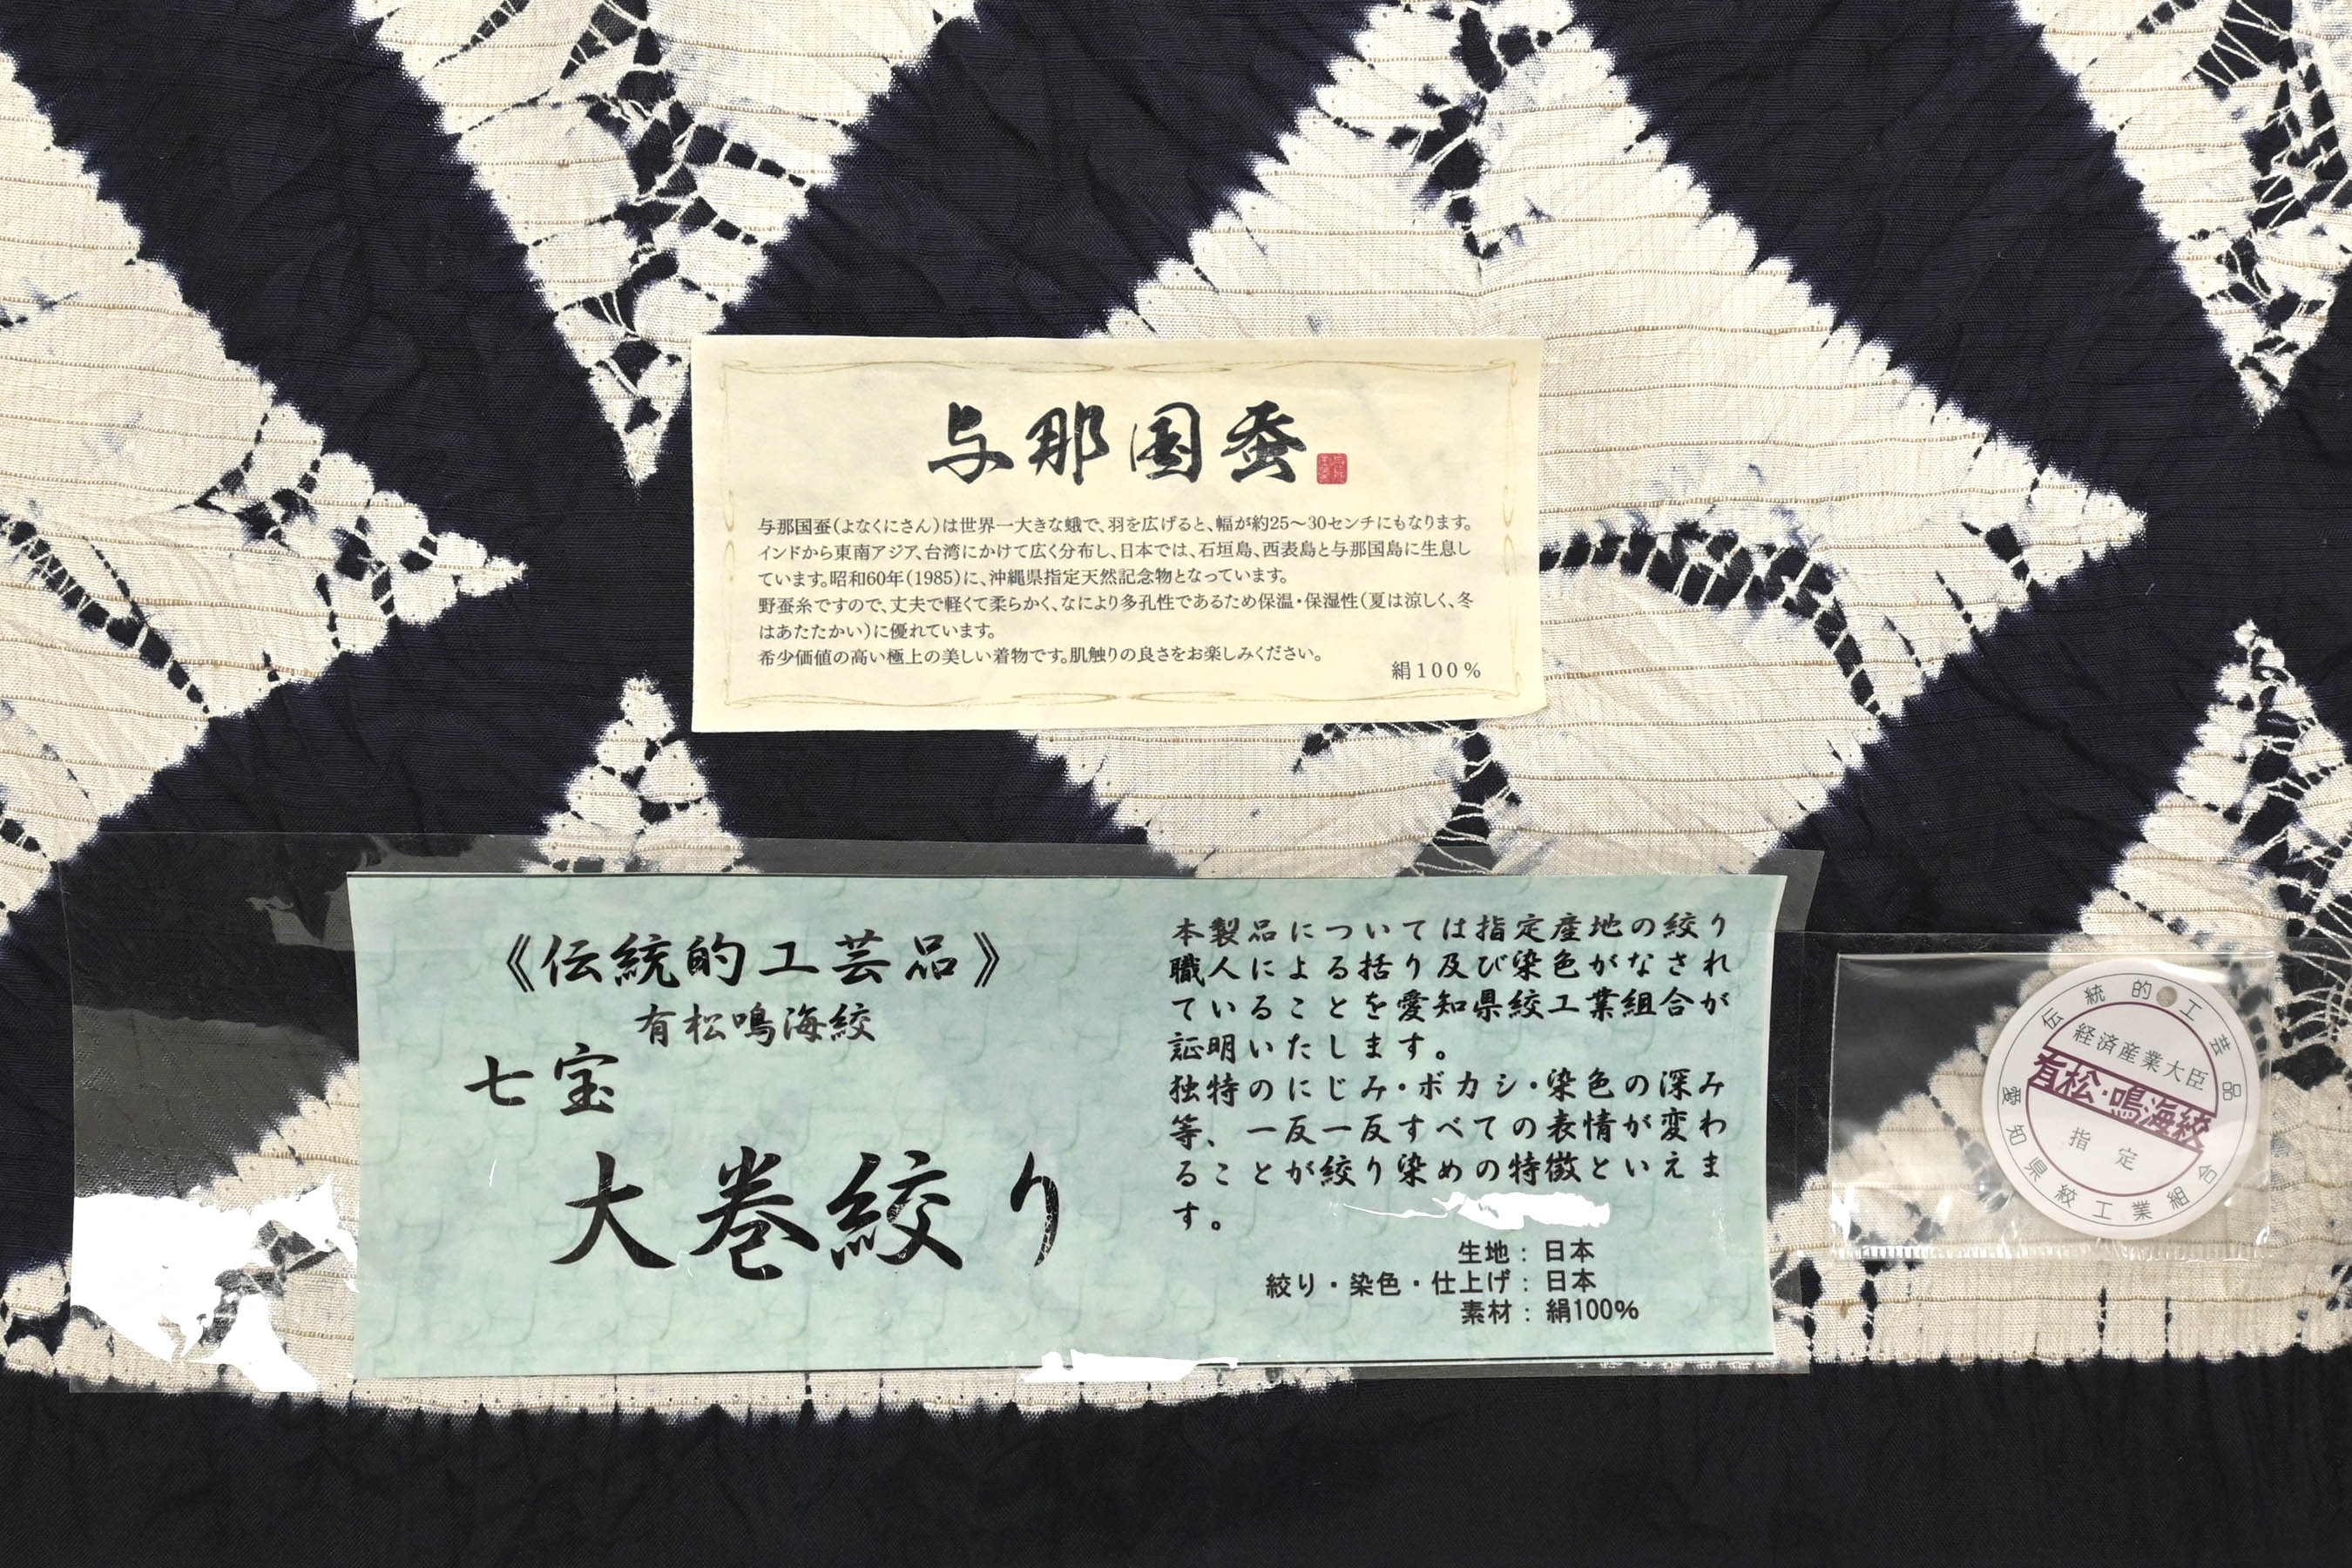 与那国蚕
与那国蚕(よなくにさん)は世界一大きな蛾で、羽を広げると、幅が約25～30センチにもなります。
インドから東南アジア、台湾にかけて広く分布し、日本では、石垣島、西表島と与那国島に生息し
ています。昭和60年(1985)に、沖縄県指定天然記念物となっています。
野蚕糸ですので、丈夫で軽くて柔らかく、なにより多孔性であるため保温・保湿性(夏は涼しく、冬
はあたたかい)に優れています。
希少価値の高い極上の美しい着物です。肌触りの良さをお楽しみください。
絹100%
《伝統的工芸品》
有松鳴海絞
七宝
大巻絞り
本製品については指定産地の絞り
職人による括り及び染色がなされ
ていることを愛知県絞工業組合が
証明いたします。
独特のにじみ・ボカシ・染色の深み
等、一反一反すべての表情が変わ
ることが絞り染めの特徴といえま
す。
生地：日本
絞り・染色・仕上げ：日本
素材：絹100%
伝統的工芸品
経済産業大臣
有松・鳴海絞
指定
愛知県絞工業組合